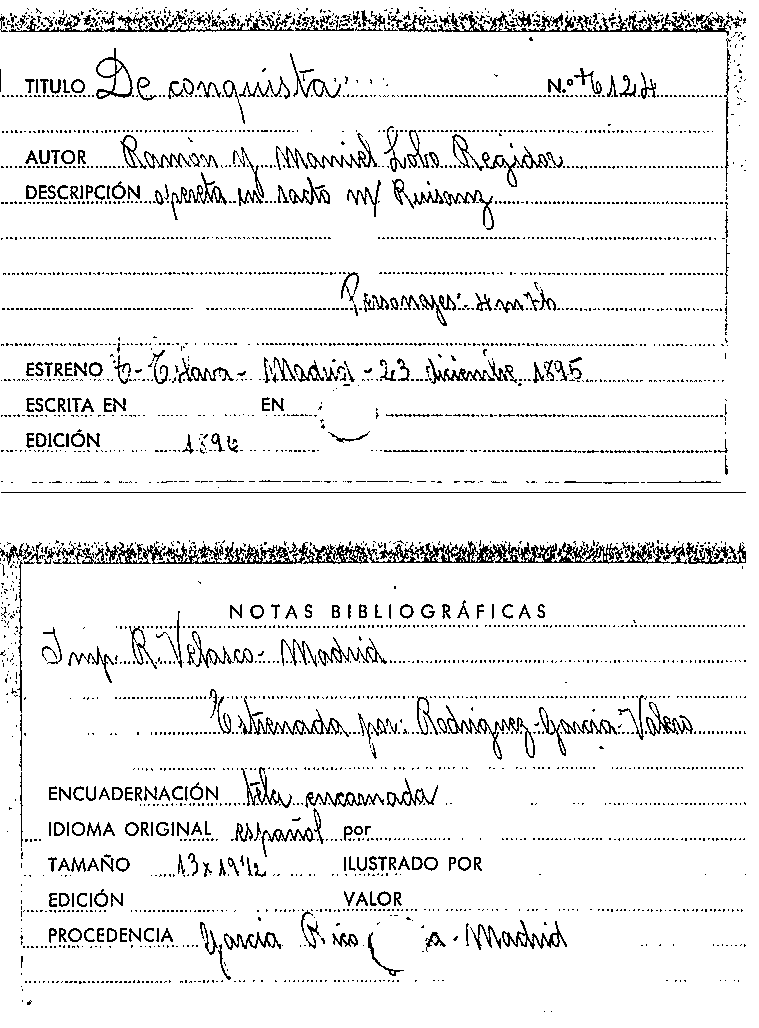 TITULO De conquista N.º 6124
AUTOR Ramón y Manuel Lobo Regidor
DESCRIPCIÓN opereta en 1 acto m/ Ruisanz
Personajes: 4m 7h
ESTRENO T- Eslava - Madrid - 23 diciembre 1895
ESCRITA EN EN
EDICIÓN 1896
NOTAS BIBLIOGRÁFICAS
Imp. R. Velasco - Madrid
Estrenada por: Rodriguez-Garcia-Valero
ENCUADERNACIÓN tela encarnada
IDIOMA ORIGINAL español por
TAMAÑO 13 x 19 1/2 ILUSTRADO POR
EDICIÓN VALOR
PROCEDENCIA Garcia Rico a - Madrid